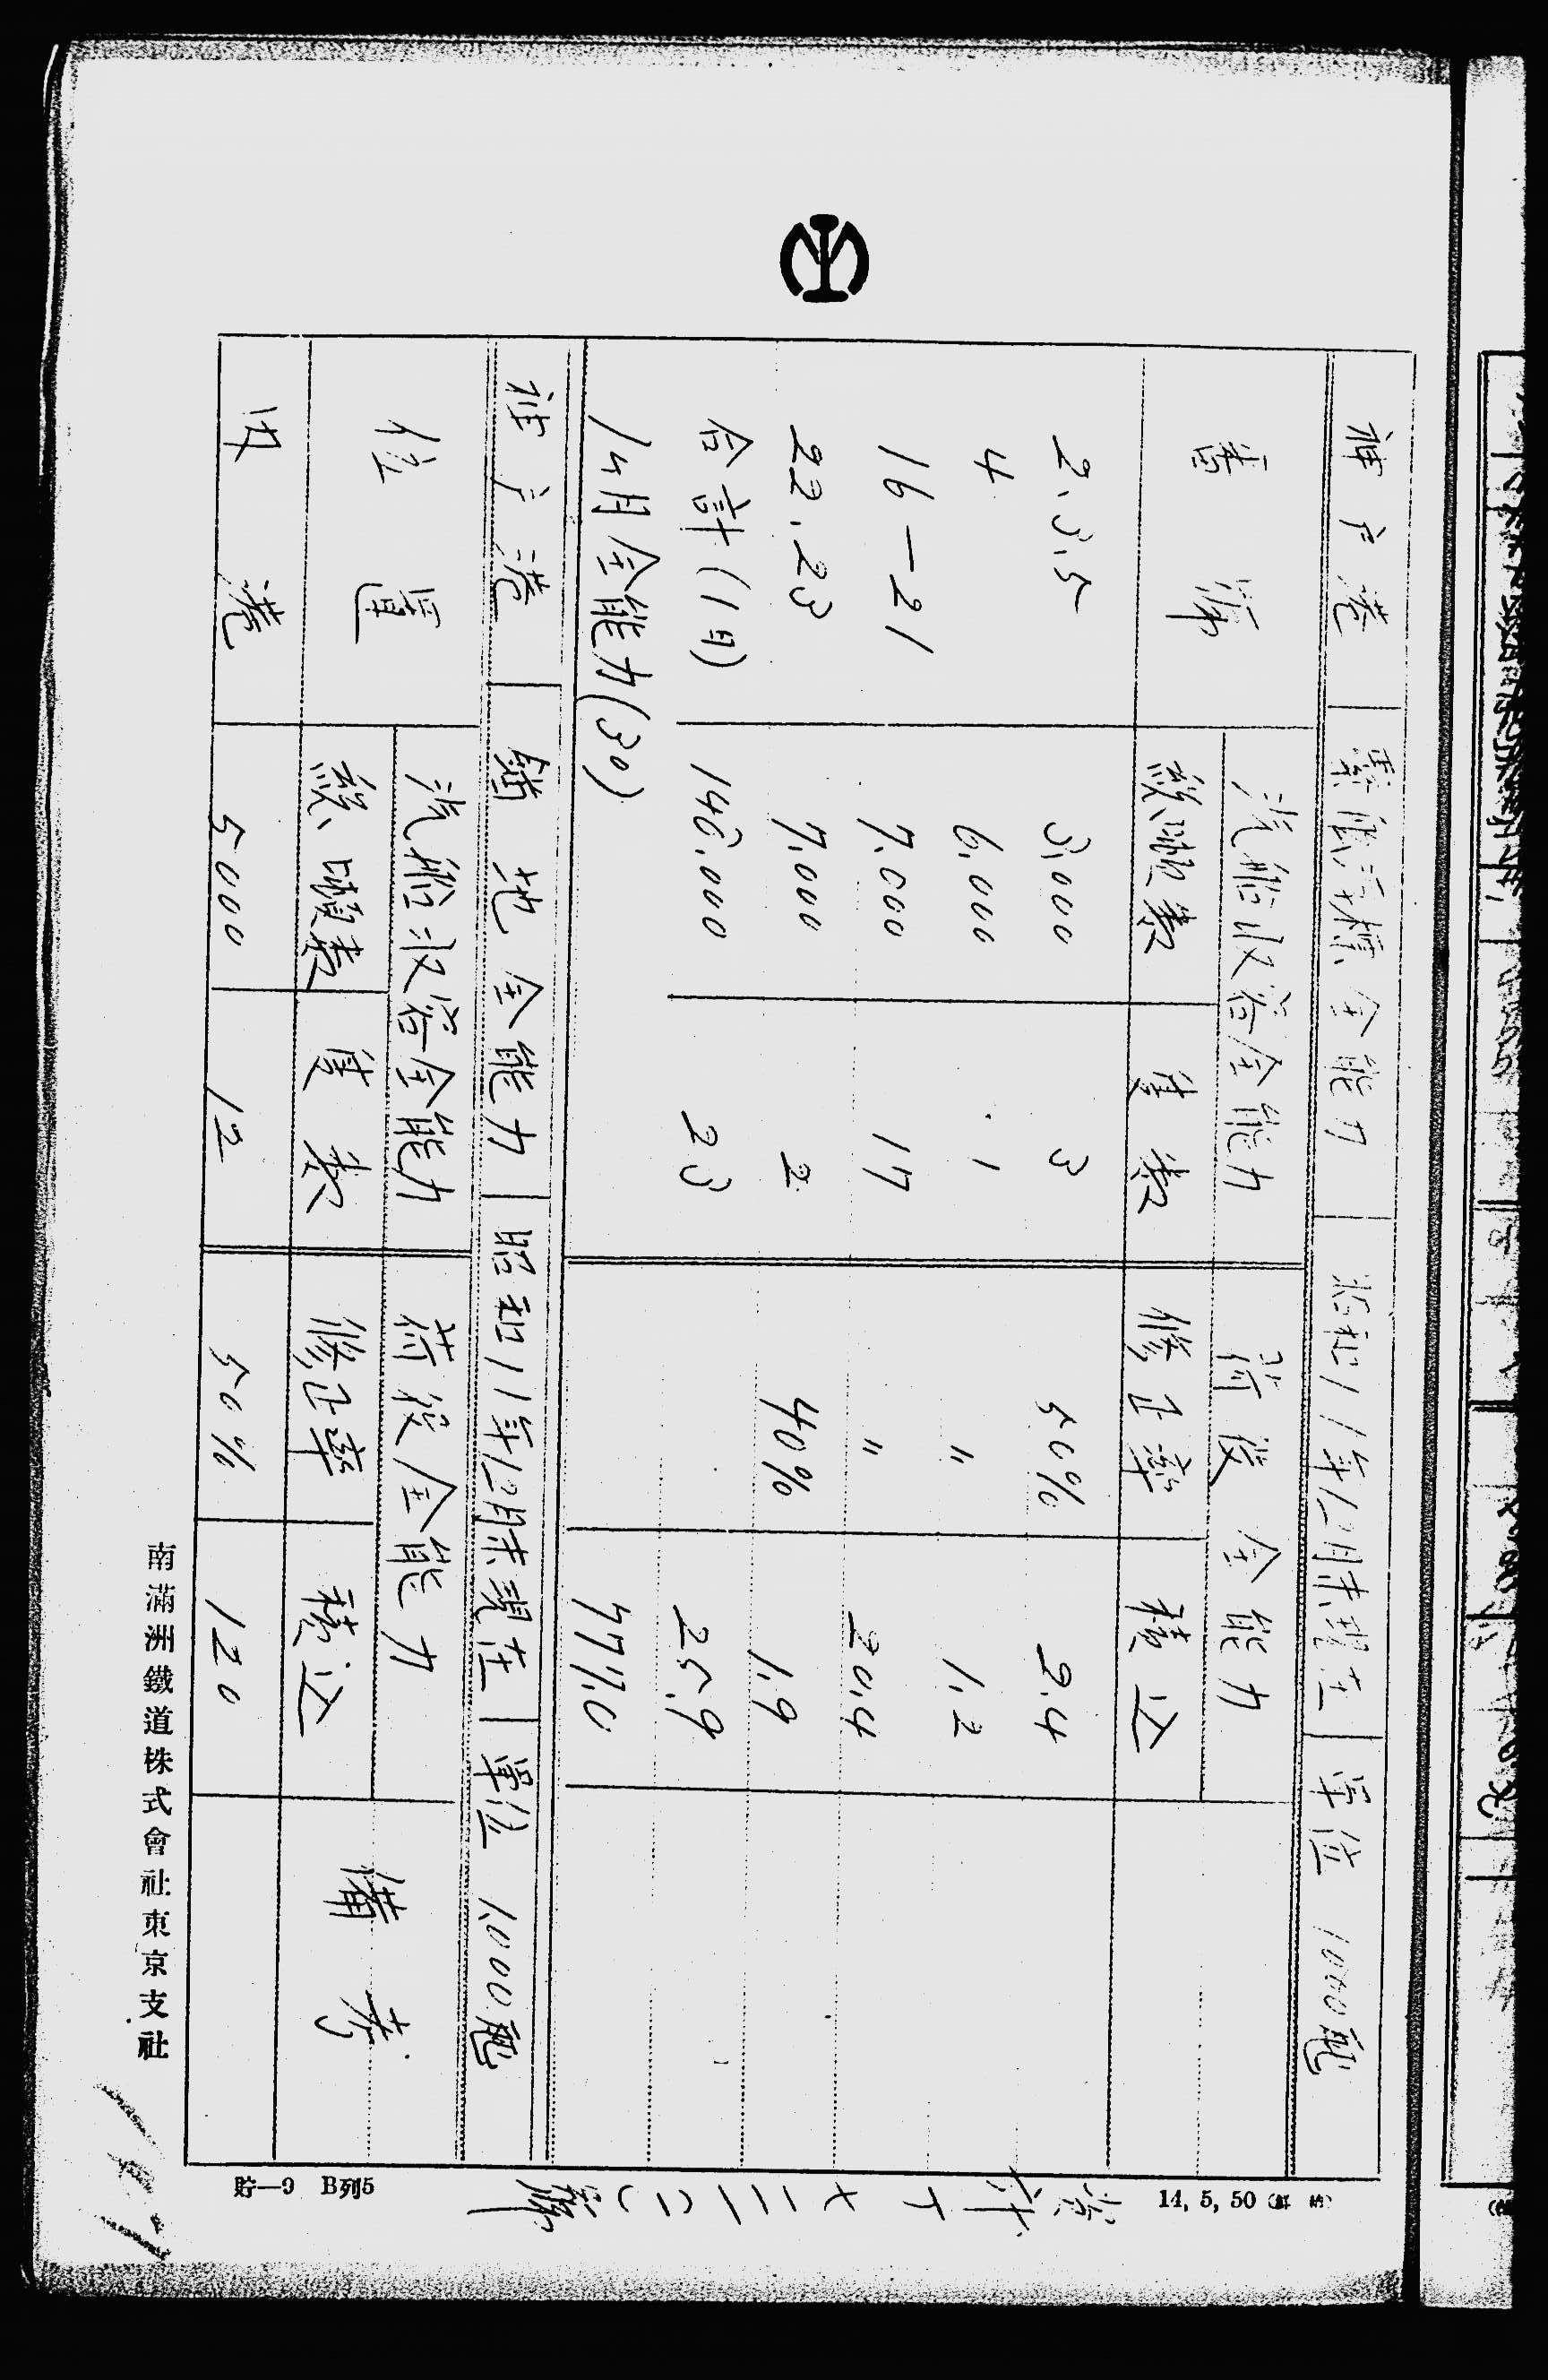 神戸港 繋船浮標全能力 昭和11年12月末現在 單位 1000瓲
番號 汽船收容全能力 荷役全能力
總噸數 隻數 修正率 積込
2.3.5 3,000 3 50% 2.4
4 6,000 1 〃 1.2
16－21 7,000 17 〃 20.4
22.23 7,000 2 40% 1.9
合計(1日) 146,000 23 25.9
1ヶ月全能力(30) 777.0
神戸港 錨地全能力 昭和11年12月末現在 單位 1,000瓲
位置 汽船收容全能力 荷役全能力 備考
總噸數 隻數 修正率 積込
内港 5000 12 50% 120
南滿洲鐵道株式會社東京支社
貯—9 B列5
14, 5, 50